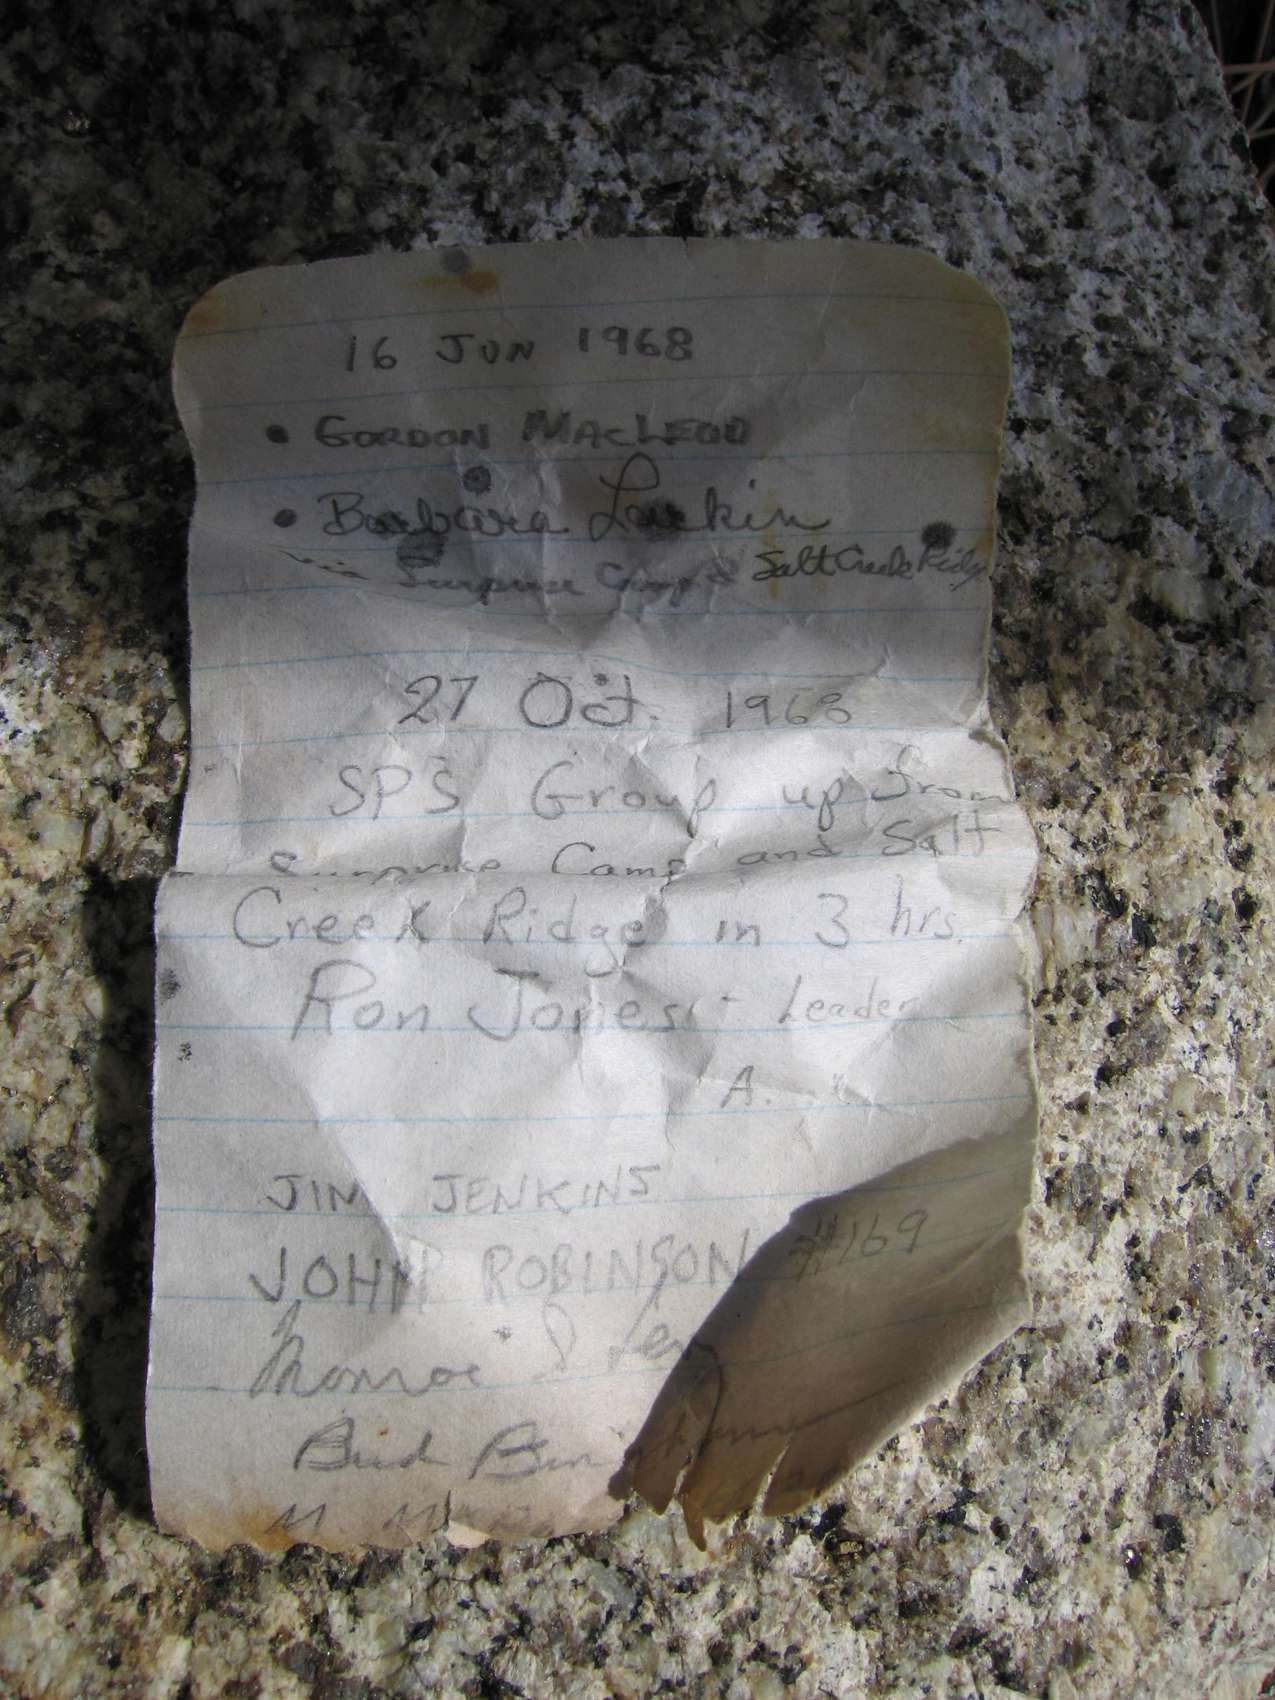 16 JUN 1968
• GORDON MACLEOD
• Barbara Lurkin
via Surprise Camp & Salt Creek Ridge
27 Oct. 1968
SPS Group up from
Surprise Camp and Salt
Creek Ridge in 3 hrs.
Ron Jones - Leader
A.
JIM JENKINS
JOHN ROBINSON #169
Monroe J Levy
Bud